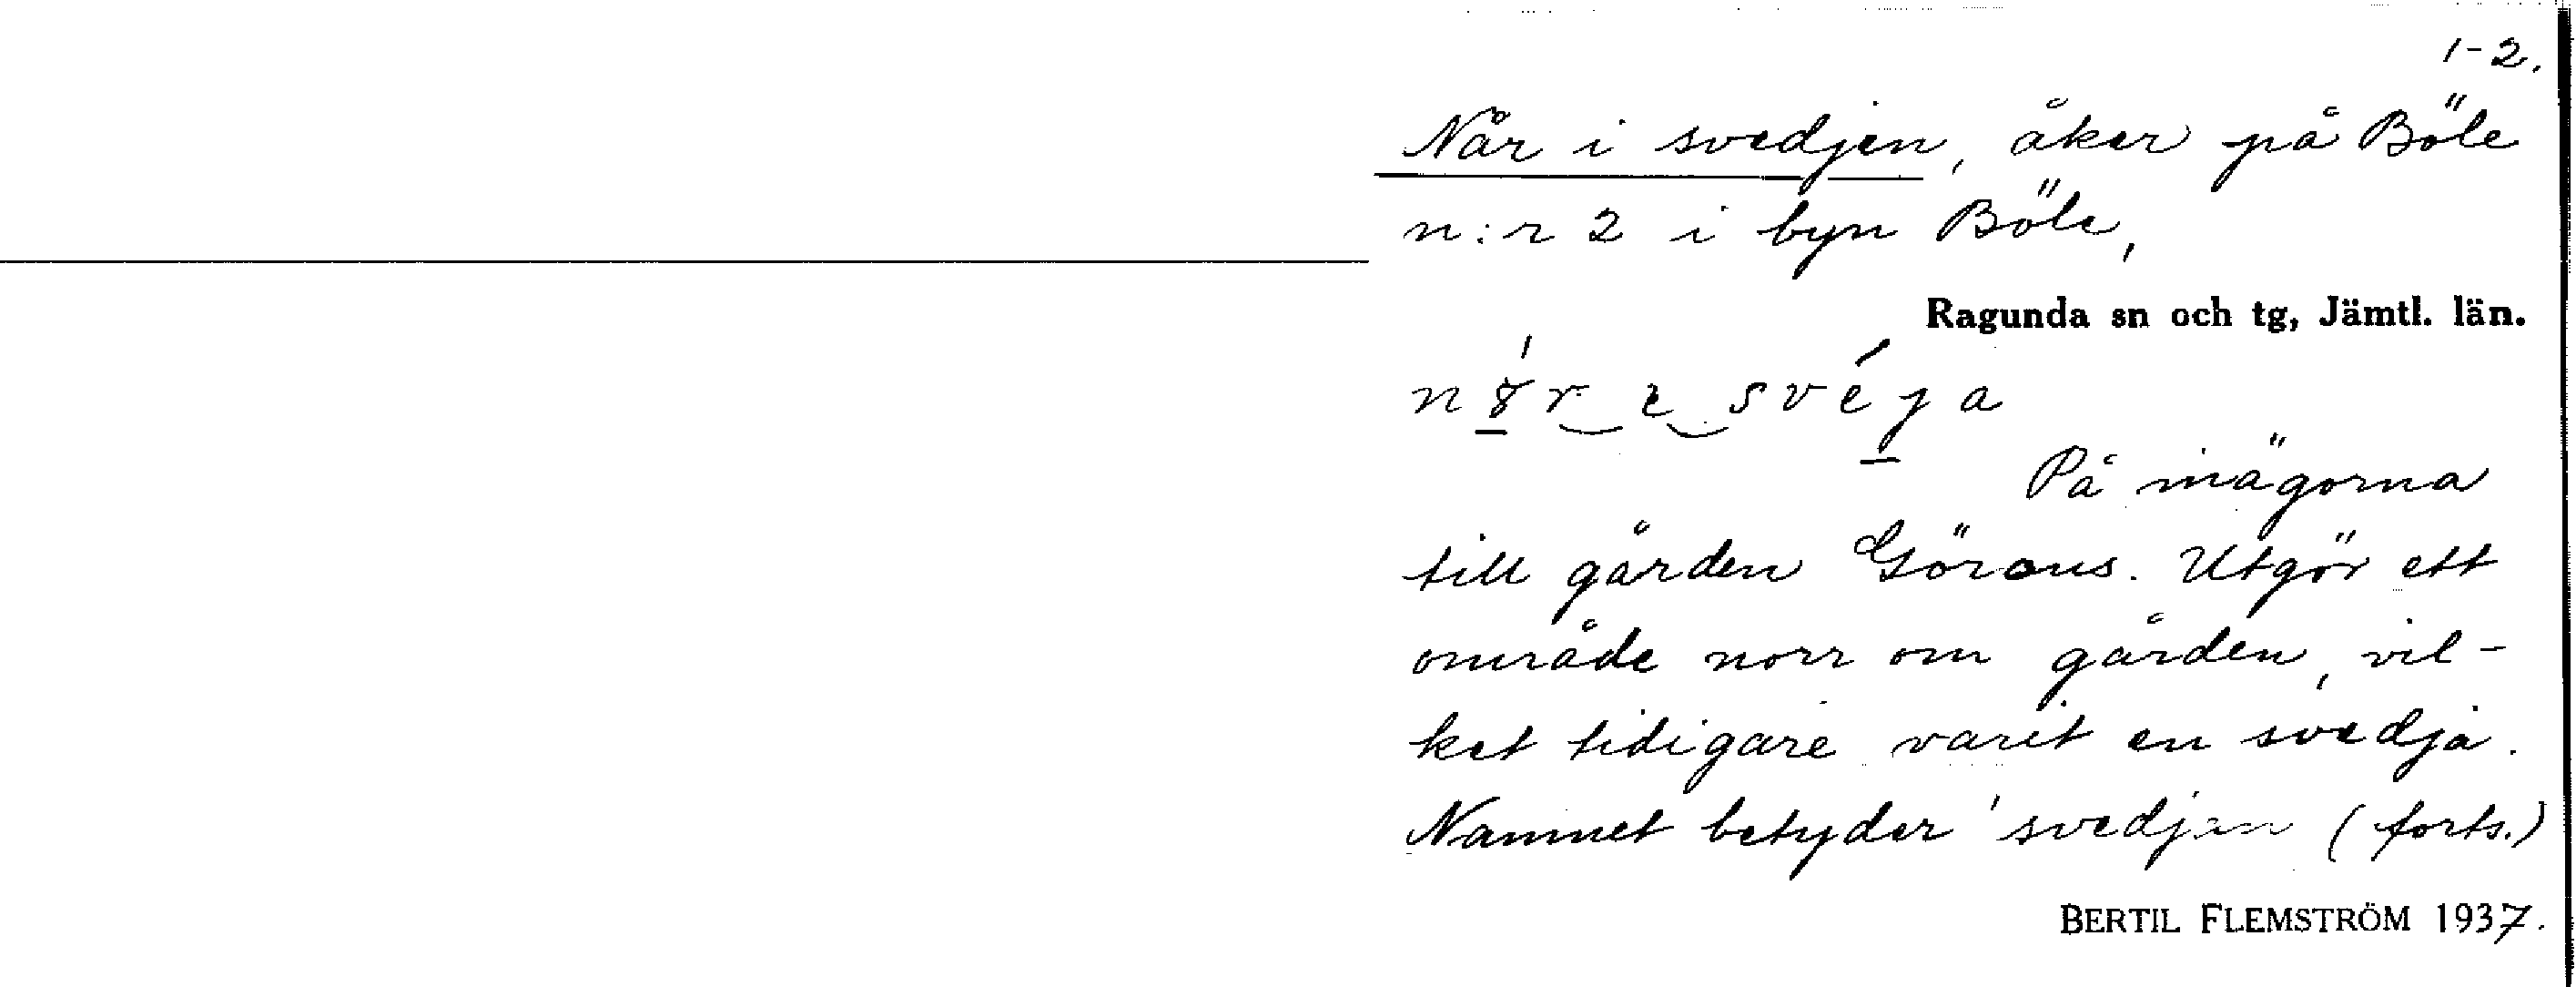 1-2.
Når i svedjen, åker på Böle
n:r 2 i byn Böle,
Ragunda sn och tg, Jämtl. län.
På inägorna
till gården Görans. Utgör ett
område norr om gården, vil-
ket tidigare varit en svedja.
Namnet betyder 'svedjen (forts.)
BERTIL FLEMSTRÖM 1937.